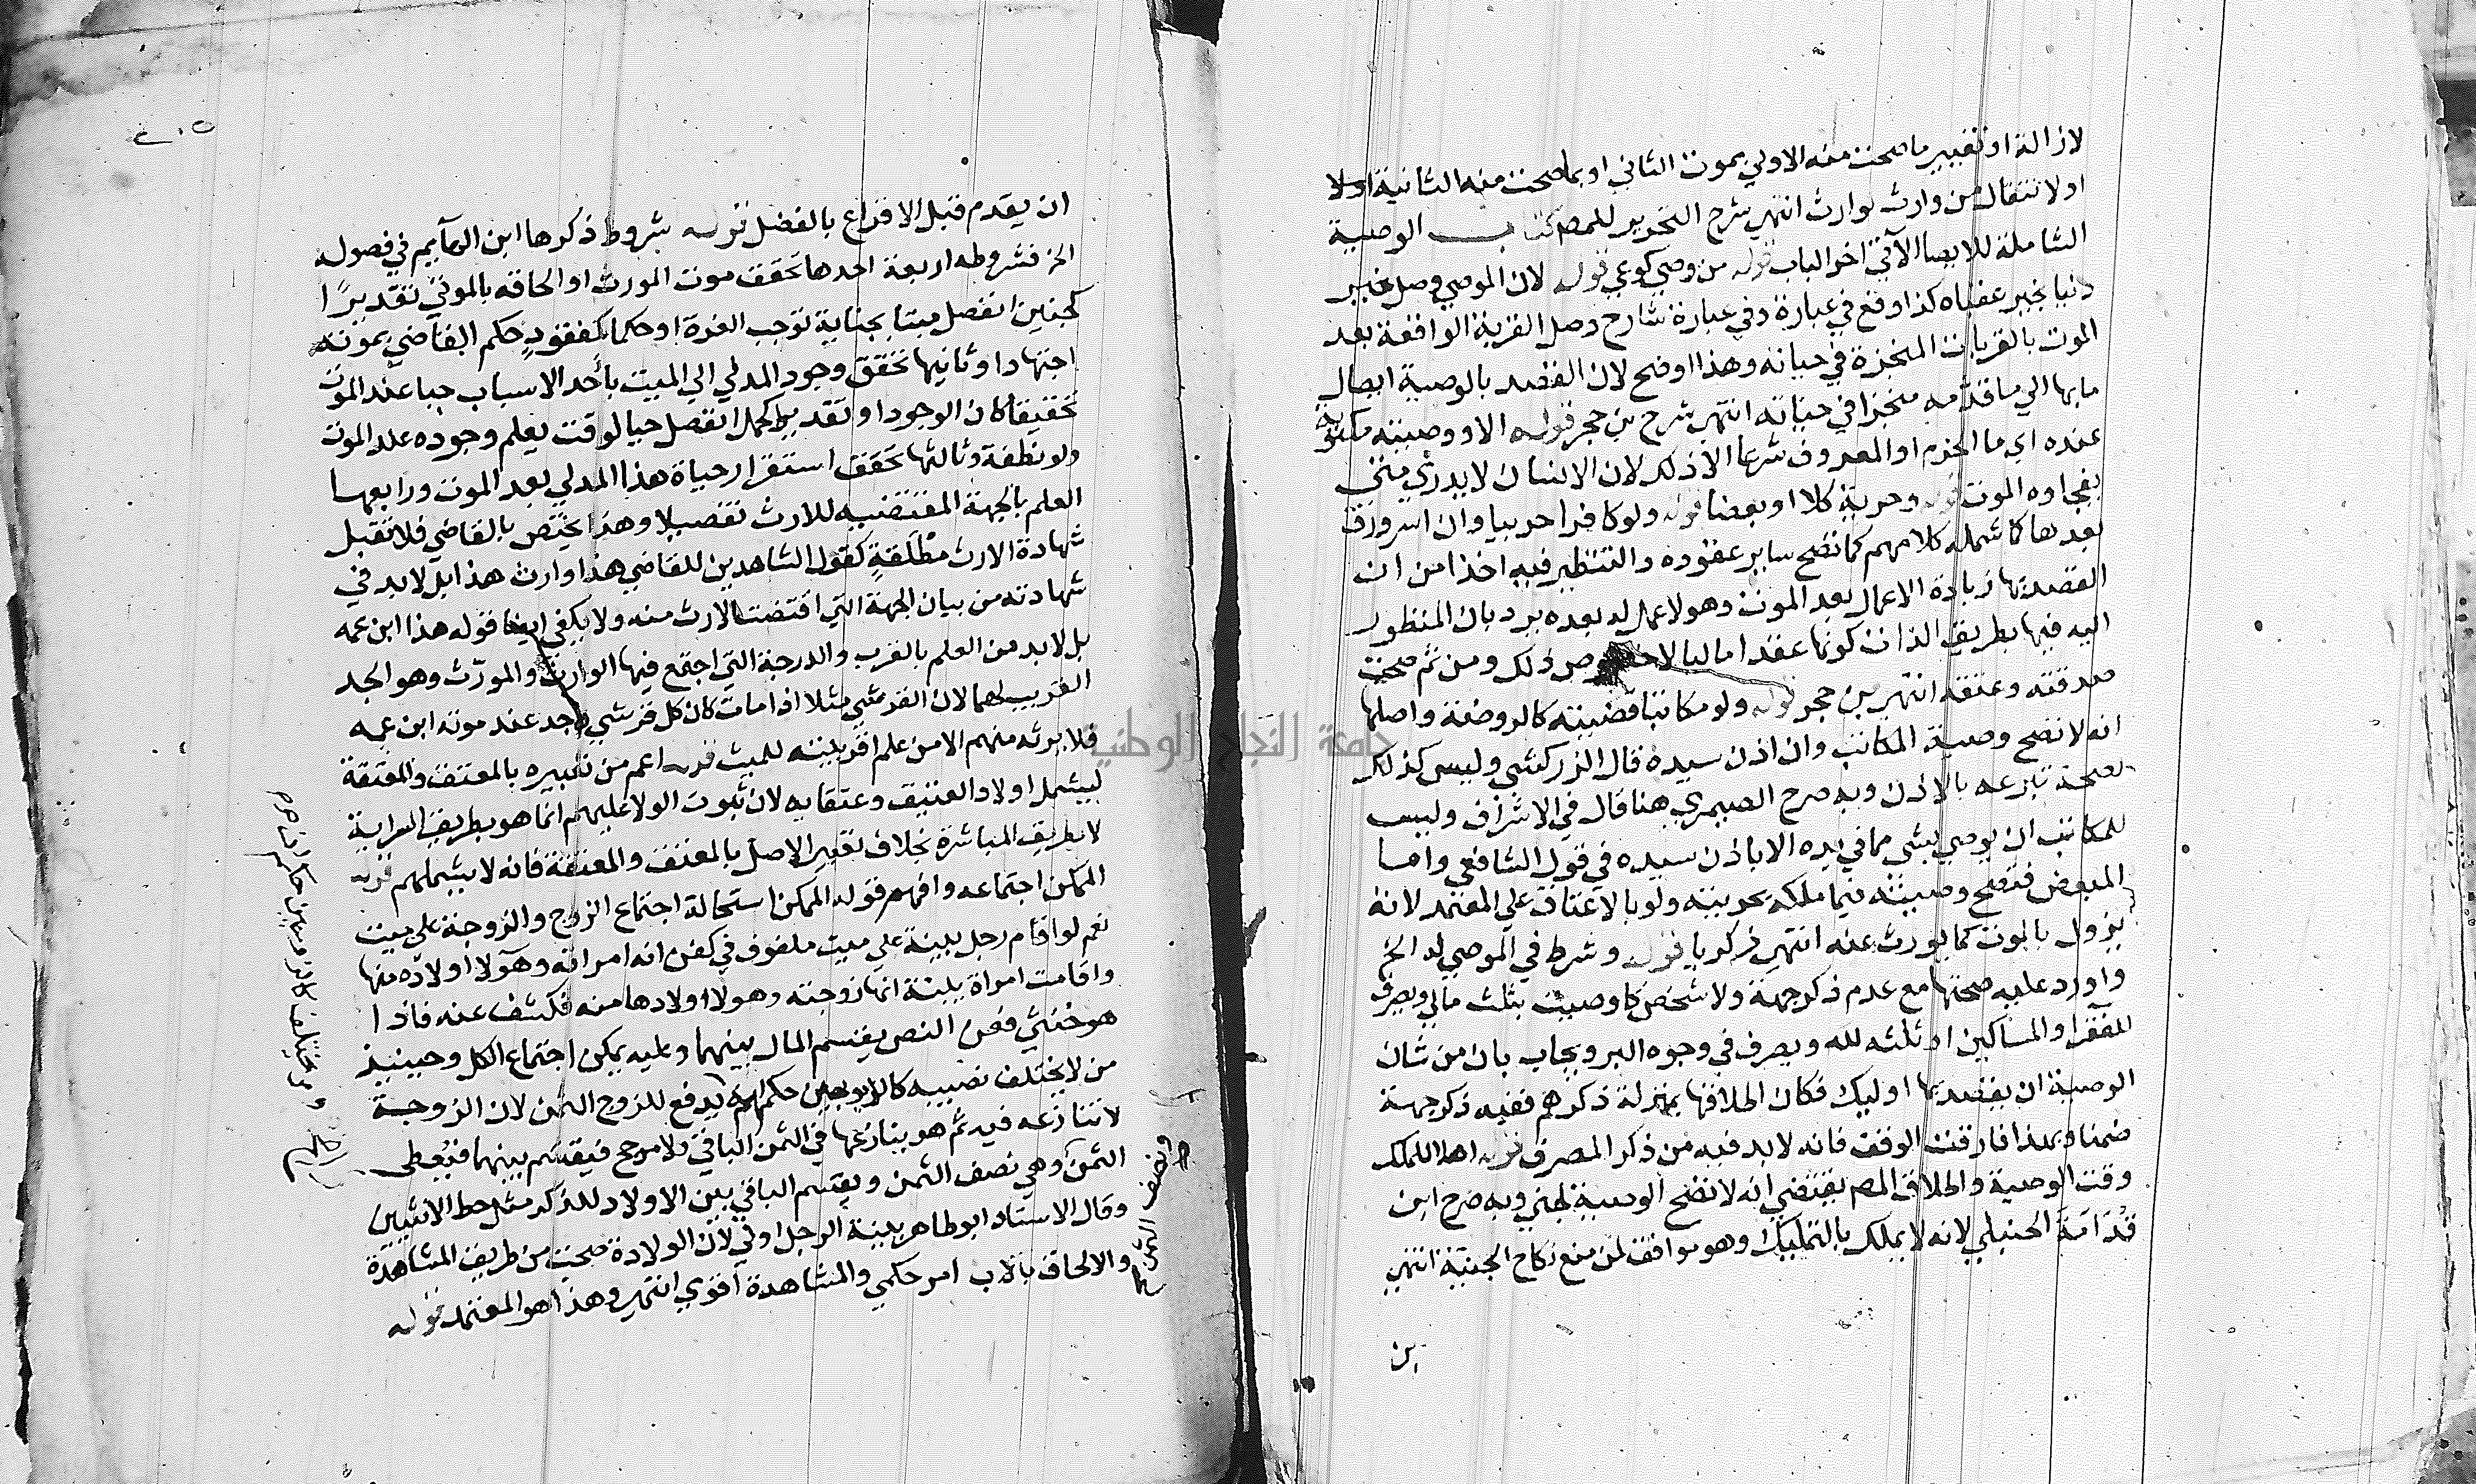 لازالة او تغيير ما صحت منه الاولي بموت الثاني او بما صحت منه الثانية اولا
اولانتقال من وارث لوارث انتهي شرح التحرير للمص كتاب الوصية
الشاملة للايصا الآتي اخر الباب قوله من وصي كوعي قوله لان الموصي وصل خير
دنياه بخير عقباه كذا وقع في عبارة وفي عبارة شارح وصل القربة الواقعة بعد
الموت بالقربات المنجزة في حياته وهذا اوضح لان القصد بالوصية ايصال
ما بها الي ما قدمه منجزا في حياته انتهي شرح بن حجر قوله الا ووصيته مكتوبة
عنده اي ما الحزم او المعروف شرعا الا ذلك لان الانسان لا يدري متي
يفجاوه الموت قوله وحرية كلا او بعضا قوله ولو كافرا حربيا وان استرق
بعدها كما شمله كلامهم كما تصح ساير عقوده والتنظير فيه اخذا من ان
القصد بها زيادة الاعمال بعد الموت وهو لا عمل له بعده يرد بان المنظور
اليه فيها بطريق الذات كونها عقدا ماليا لا خصوص ذلك ومن ثم صحت
صدقته وعتقه انتهي بن حجر قوله ولو مكاتبا قضيته كالروضة واصلها
انه لا تصح وصية المكاتب وان اذن سيده قال الزركشي وليس كذلك
لصحة تبرعه بالاذن وبه صرح الصيمري هنا قال في الاشراف وليس
للمكاتب ان يوصي بشي مما في يده الا باذن سيده في قول الشافعي واما
المبعض فتصح وصيته فيما ملكه بحريته ولو بالاعتاق علي المعتمد لانه
يزول بالموت كما يورث عنه انتهي زكريا قوله وشرط في الموصي له الخ
واورد عليه صحتها مع عدم ذكر جهة ولا شخص كاوصيت بثلث مالي ويصرف
للفقرا والمساكين او ثلثه لله ويصرف في وجوه البر ويجاب بان من شان
الوصية ان يقصد بها اوليك فكان اطلاقها بمنزلة ذكرهم ففيه ذكر جهة
ضمنا وبهذا فارقت الوقف فانه لا بد فيه من ذكر المصرف قوله اهلا للملك
وقت الوصية واطلاق المص يقتضي انه لا تصح الوصية لجني وبه صرح ابن
قدامة الحنبلي لانه لا يملك بالتمليك وهو موافق لمن منع نكاح الجنية انتهي
بن
٢٠٥
ان يقدم قبل الافراع بالفضل قوله شروط ذكرها ابن الهآيم في فصوله
الخ فشروطه اربعة احدها تحقق موت المورث او الحاقه بالموتي تقديرًا
كجنين انفصل ميتا بجناية توجب الغرة او حكما كمفقود حكم القاضي بموته
اجتهادا وثانيها تحقق وجود المدلي الي الميت باحد الاسباب حيا عند الموت
تحقيقا كان الوجود او تقديرا كحمل انفصل حيا لوقت يعلم وجوده عند الموت
ولو نطفة وثالثها تحقق استقرار حياة هذا المدلي بعد الموت ورابعها
العلم بالجهة المقتضيه للارث تفصيلا وهذا يختص بالقاضي فلا تقبل
شهادة الارث مطلقةٍ كقول الشاهدين للقاضي هذا وارث هذا بل لا بد في
شهادته من بيان الجهة التي اقتضت الارث منه ولا يكفي ايضا قوله هذا ابن عمه
بل لا بد من العلم بالقرب والدرجة التي اجتمع فيها الوارث والمورّث وهو الجد
القريب لهما لان القرشي مثلا اذا مات كان كل قرشي وجد عند موته ابن عمه
فلا يرثه منهم الا من علم اقربيته للميت قوله اعم من تعبيره بالمعتق والمعتقة
ليشمل اولاد العتيق وعتقايه لان ثبوت الولا عليهم انما هو بطريق السراية
لا بطريق المباشرة بخلاف تعبير الاصل بالمعتق والمعتقة فانه لا يشملهم قوله
الممكن اجتماعه وافهم قوله الممكن استحالة اجتماع الزوج والزوجة علي ميت
نعم لو اقام رجل بينة علي ميت ملفوف في كفن انه امراته وهآولا اولاده منها
واقامت امراة بينة انها زوجته وهولا اولادها منه فكشف عنه فاذا
هو خنثي فعن النص يقسم المال بينهما وعليه يمكن اجتماع الكل وحينيذ
من لا يختلف نصيبه كالابوين حكمهم يدفع للزوج الثمن لان الزوجة
لا تنازعه فيه ثم هو ينازعها في الثمن الباقي ولا مرجح فيقسم بينهما فيُعطي
الثمن وهي نصف الثمن ويقسم الباقي بين الاولاد للذكر مثل حظ الانثيين
وقال الاستاذ ابو طاهر بينة الرجل اولي لان الولادة صحت من طريق المشاهدة
والالحاق بالاب امر حكمي والمشاهدة اقوي انتهي وهذا هو المعتمد قوله
ونصف الثمن
ومن يختلف كالزوجين حكمه انا